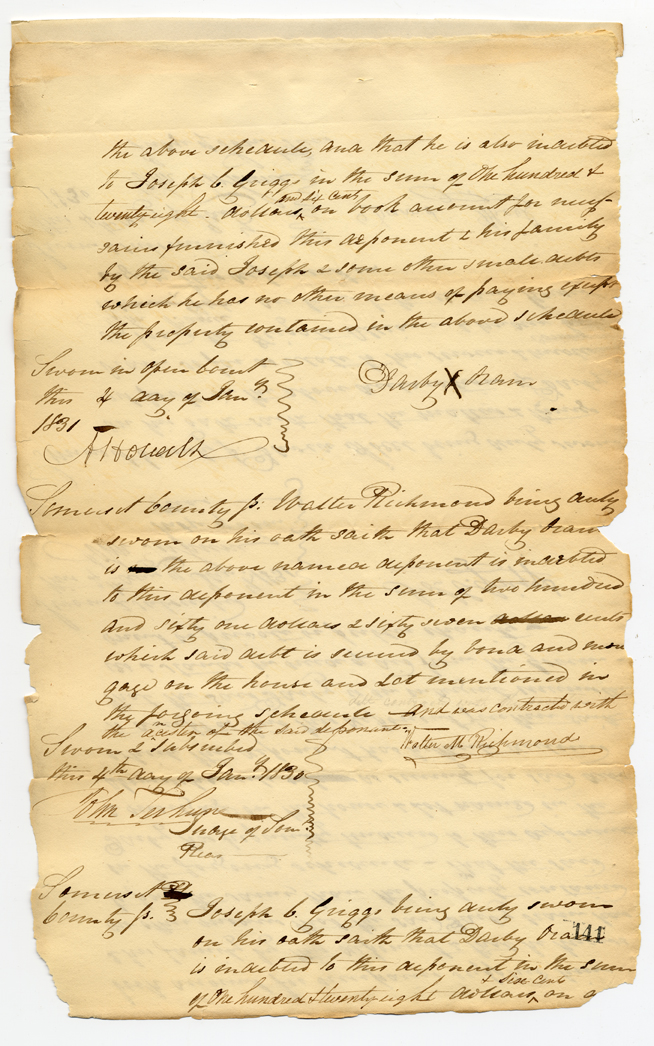 the above schedule, and that he is also indebted
to Joseph C. Griggs in the sum of One hundred &
twenty eight dollars and six cents on book account for neces-
saries furnished this deponent & his family
by the said Joseph & some other small debts
which he has no other means of paying except
the property contained in the above schedule
Sworn in open Court
this 4 day of Jany
1831
Darby X Oram
Somerset County ss. Walter Richmond being duly
sworn on his oath saith that Darby Oram
is the above named deponent is indebted
to this deponent in the sum of two hundred
and sixty one dollars & sixty seven cents
which said debt is secured by bond and mort
gage on the house and Lot mentioned in
the forgoing schedule and was contracted with
the ancestor of the said deponent
Sworn & subscribed
this 4th day of Jany 1830
Walter M. Richmond
John Terhune
Judge of Som.
Pleas
Somerset
County ss.
Joseph C. Griggs being duly sworn
on his oath saith that Darby Oram
is indebted to this deponent in the sum
of One hundred & twenty eight dollars & six cents on a
141